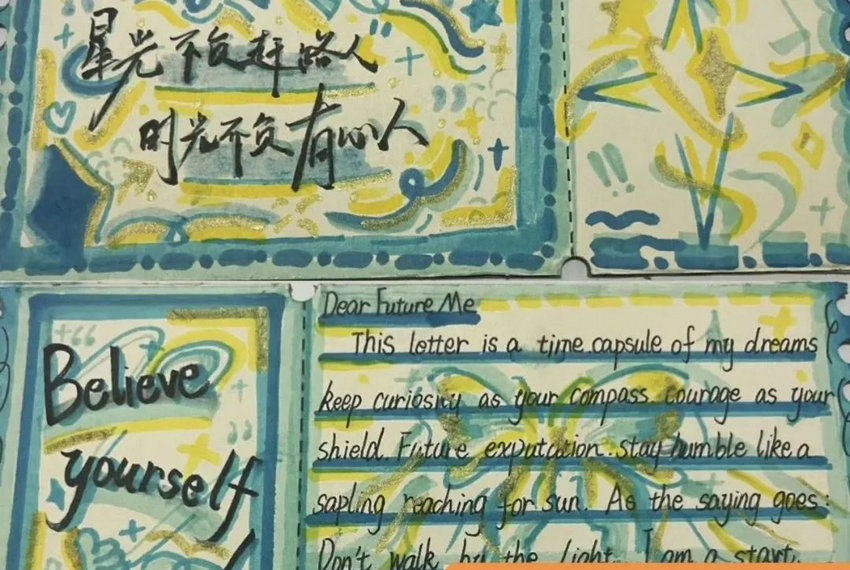 星光不负赶路人
时光不负有心人
Believe
yourself
Dear Future Me
This letter is a time capsule of my dreams
keep curiosity as your compass. courage as your
shield. Future exputation. stay humble like a
sapling reaching for sun. As the saying goes:
Don't walk by the light. I am a start.